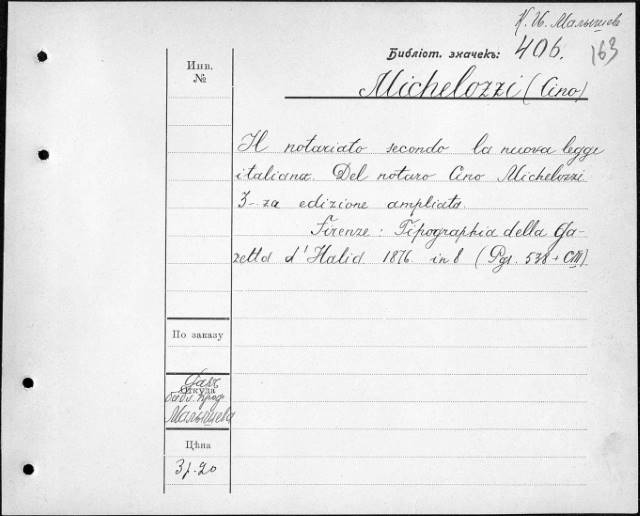 К. И. Малышев
Библіот. значекъ: 406. 163
Инв.
№
Michelozzi (Cino)
Il notariato secondo la nuova legge
italiana. Del notaro Cino Michelozzi
3-za edizione ampliata.
Firenze: Tipographia della Ga-
zetta d'Italia 1876. in 8 (Pgs. 538 + CIII)
По заказу
Откуда
Даръ
библ. проф.
Малышева
Цѣна
3 р. 20